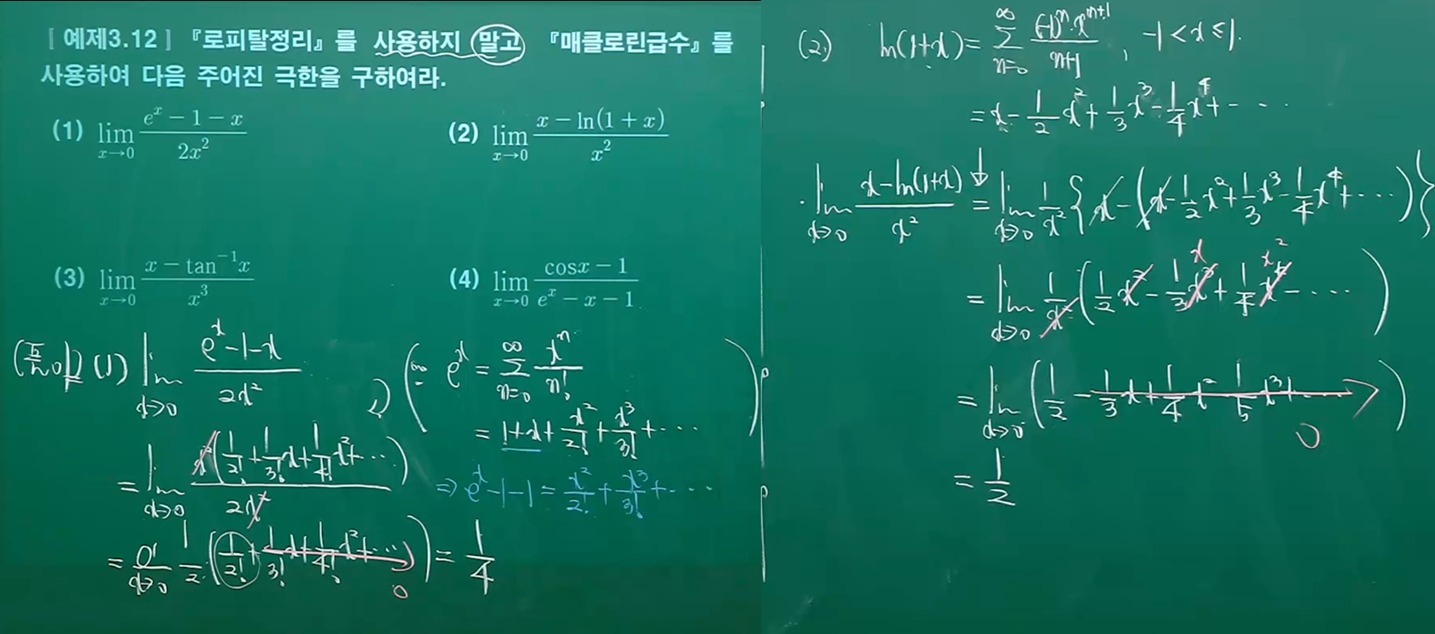 [ 예제3.12 ] 『로피탈정리』를 사용하지 말고 『매클로린급수』를
사용하여 다음 주어진 극한을 구하여라.
(1) lim_{x→0} (e^x − 1 − x)/(2x^2)
(2) lim_{x→0} (x − ln(1 + x))/(x^2)
(3) lim_{x→0} (x − tan^{-1}x)/(x^3)
(4) lim_{x→0} (cosx − 1)/(e^x − x − 1)
(풀이) (1) lim_{x→0} (e^x − 1 − x)/(2x^2)
= lim_{x→0} x^2(1/2! + 1/3! x + 1/4! x^2 + ⋯)/(2x^2)
= lim_{x→0} 1/2 (1/2! + 1/3! x + 1/4! x^2 + ⋯) = 1/4
0
(∵ e^x = ∑_{n=0}^{∞} x^n/n!
= 1 + x + x^2/2! + x^3/3! + ⋯)
⇒ e^x − 1 − 1 = x^2/2! + x^3/3! + ⋯
(2) ln(1+x) = ∑_{n=0}^{∞} (−1)^n · x^{n+1}/(n+1), −1 < x ≤ 1.
= x − 1/2 x^2 + 1/3 x^3 − 1/4 x^4 + ⋯
· lim_{x→0} (x − ln(1+x))/x^2 = lim_{x→0} 1/x^2 { x − (x − 1/2 x^2 + 1/3 x^3 − 1/4 x^4 + ⋯) }
= lim_{x→0} 1/x^2 (1/2 x^2 − 1/3 x^3 + 1/4 x^4 − ⋯)
x x^2
= lim_{x→0} (1/2 − 1/3 x + 1/4 x^2 − 1/5 x^3 + ⋯)
0
= 1/2